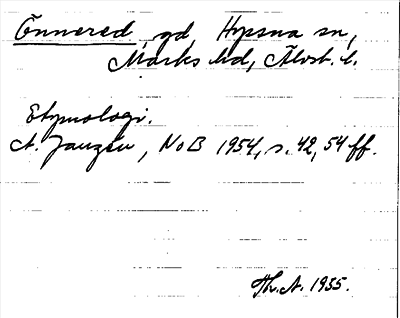 Önnered, gd, Hyssna sn,
Marks hd, Älvsb. l.
Etymologi.
A. Janzén, NoB 1954, s. 42, 54 ff.
Th. A. 1955.